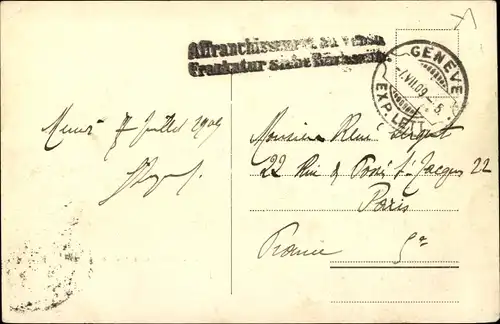 Affranchissement au verso
Frankatur siehe Rückseite.
GENÈVE
-7.VII.09.-5
EXP. LETT.
7 Juillet 1909
Monsieur René Sergent
22 Rue des Fossés St Jacques 22
Paris
France 5e